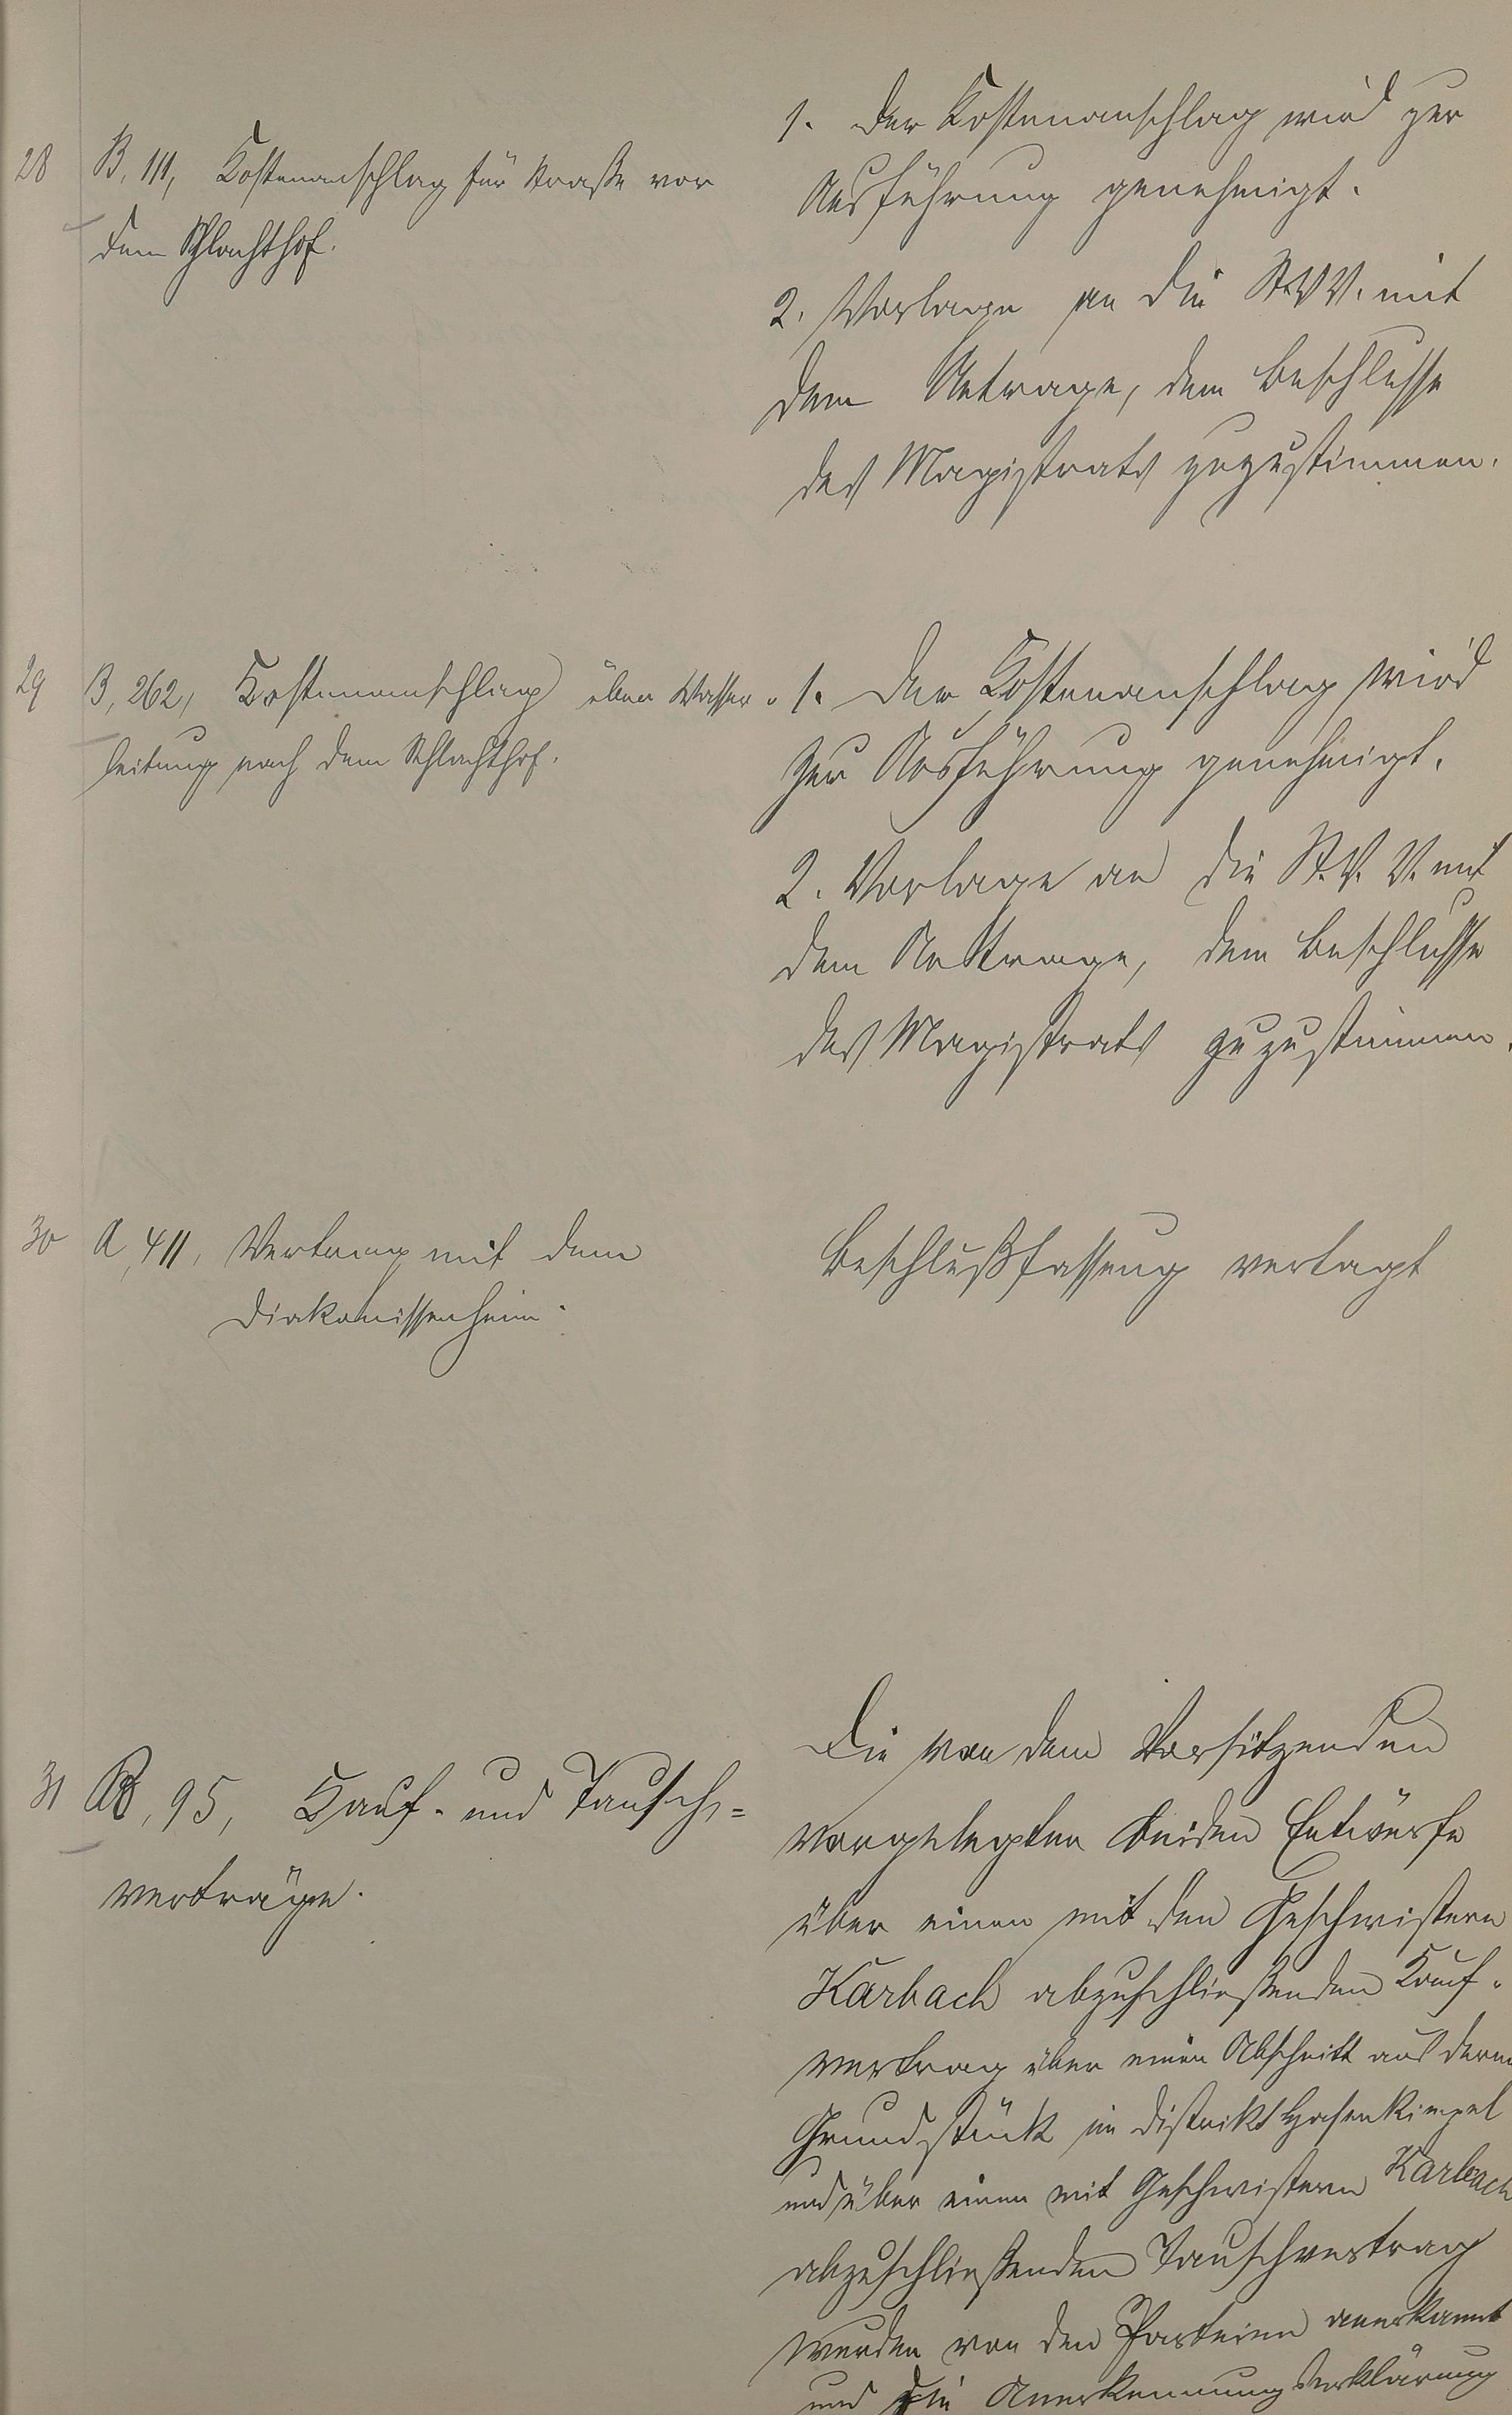 28 B, 111, Kostenanschlag für Straße vor
dem Schlachthof.
1. Der Kostenanschlag wird zur
Ausführung genehmigt.
2. Vorlage an die St.V.V. mit
dem Antrage, dem Beschlusse
des Magistrats zuzustimmen.
29 B, 262, Kostenanschlag über Wasser-
leitung nach dem Schlachthof.
1. Der Kostenanschlag wird
zur Ausführung genehmigt.
2. Vorlage an die St.V.V. mit
dem Antrage, dem Beschlusse
des Magistrats zuzustimmen.
30 A, 411, Vertrag mit dem
Diakonissenheim.
Beschlußfassung vertagt
31 B, 95, Kauf- und Tausch=
verträge.
Die von dem Vorsitzenden
vorgelegten beiden Entwürfe
über einen mit den Geschwistern
Karbach abzuschließenden Kauf-
vertrag über einen Abschnitt aus deren
Grundstück im Distrikt
und über einen mit Geschwistern Karbach
abzuschließenden Tauschvertrag
wurden von den Parteien anerkannt
und die Anerkennungserklärung